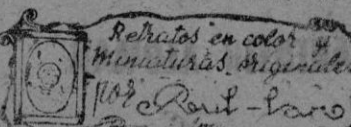 Retratos en color y
miniaturas originales
por Raul